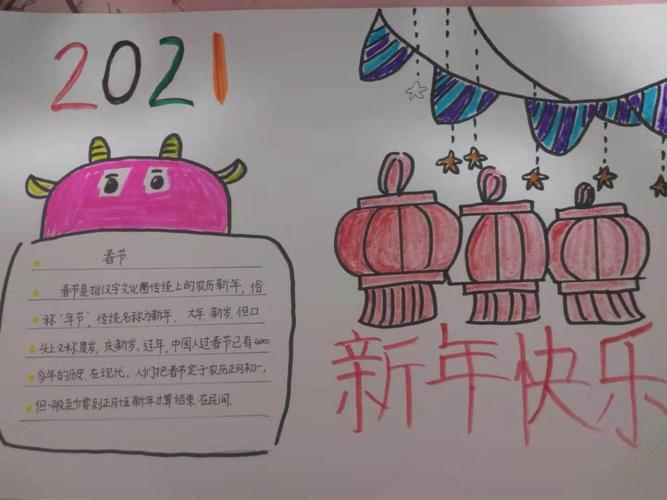 2021
春节
春节是指汉字文化圈传统上的农历新年，俗
称“年节”，传统名称为新年、大年、新岁，但口
头上又称度岁、庆新岁、过年，中国人过春节已有4000
多年的历史，在现代，人们把春节定于农历正月初一，
但一般至少要到正月十五新年才算结束，在民间，
新年快乐